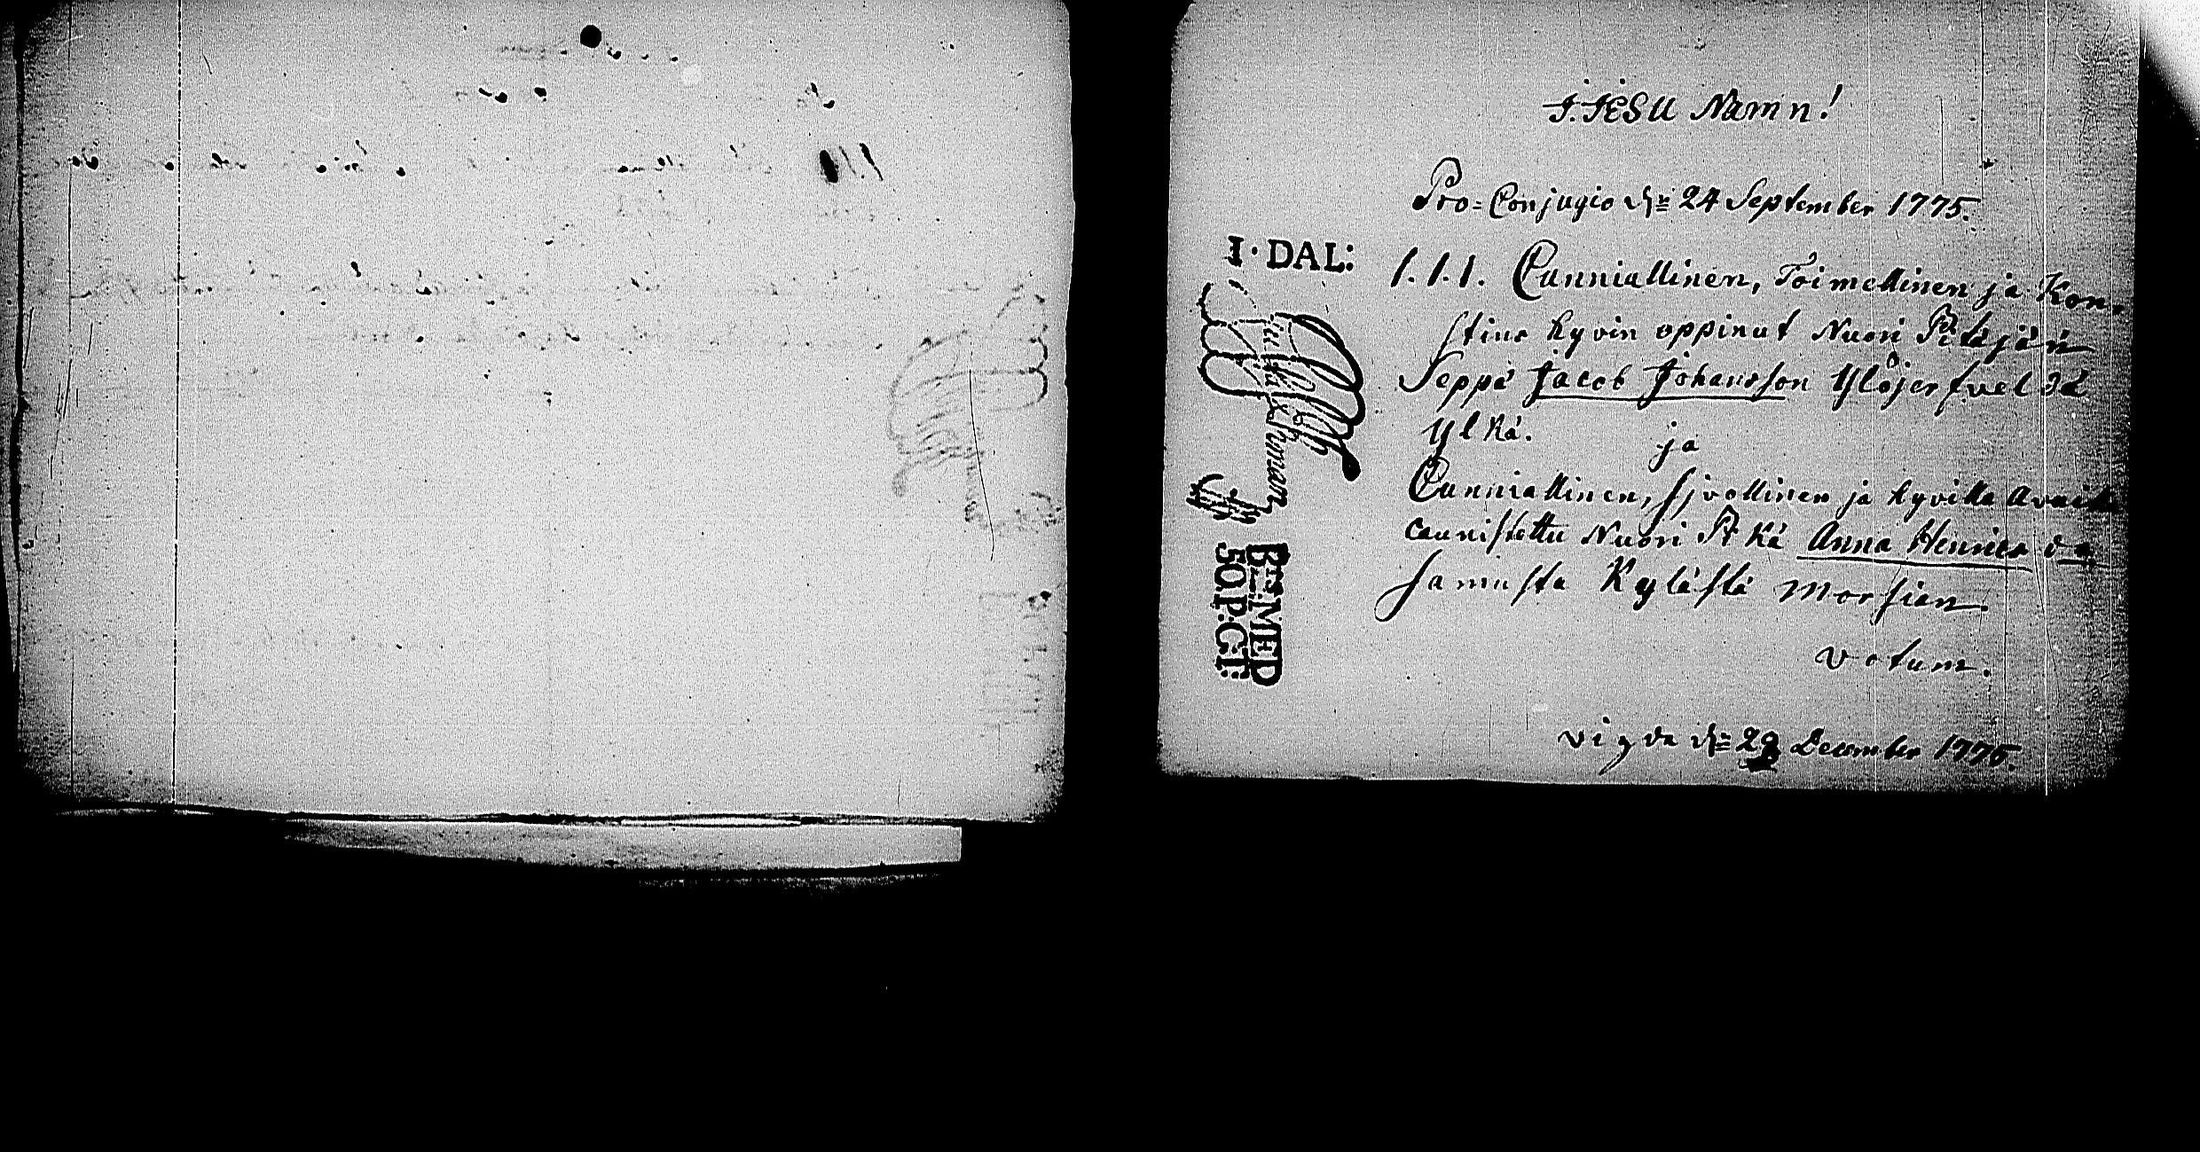 J. JESU Namn!
Pro=Conjugio dn 24 September 1775.
I·DAL:
1.1.1. Cunniallinen, Toimellinen ja Kon-
stins hyvin oppinut Nuori Pitäjän
Seppä Jacob Johansson Ylöjerfveldä
Ylhä.
ja
Cunniallinen, Sjvollinen ja hyvilla
caunistettu Nuori Pkä Anna Henrics da
Samasta Kylästä Morsian.
votum.
vigda dn 28 December 1775.
BtsMED
50.P:CT: